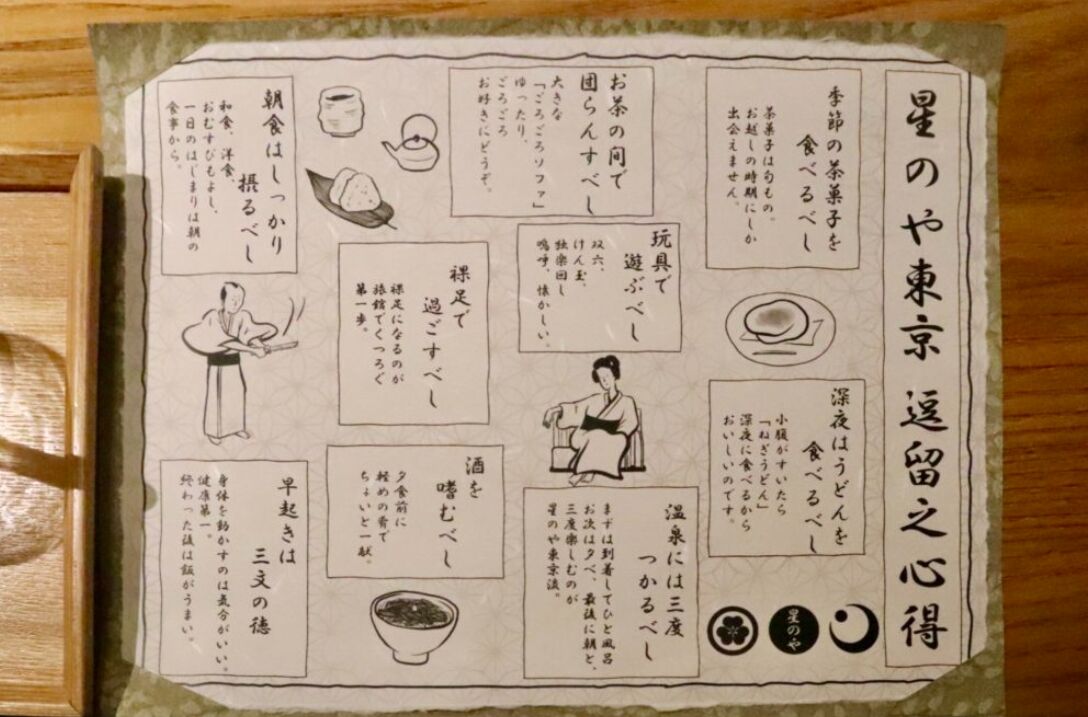 星のや東京 逗留之心得
季節の茶菓子を
食べるべし
茶菓子は旬もの。
お越しの時期にしか
出会えません。
深夜はうどんを
食べるべし
小腹がすいたら
「ねぎうどん」
深夜に食べるから
おいしいのです。
星のや
お茶の間で
団らんすべし
大きな
「ごろごろソファ」
ゆったり、
ごろごろ
お好きにどうぞ。
玩具で
遊ぶべし
双六、
けん玉、
独楽回し
嗚呼、懐かしい。
温泉には三度
つかるべし
まずは到着してひと風呂
お次は夕べ、最後に朝と、
三度楽しむのが
星のや東京流。
裸足で
過ごすべし
裸足になるのが
旅館でくつろぐ
第一歩。
酒を
嗜むべし
夕食前に
軽めの肴で
ちょいと一献。
朝食はしっかり
摂るべし
和食、洋食、
おむすびもよし、
一日のはじまりは朝の
食事から。
早起きは
三文の徳
身体を動かすのは気分がいい。
健康第一。
終わった後は飯がうまい。